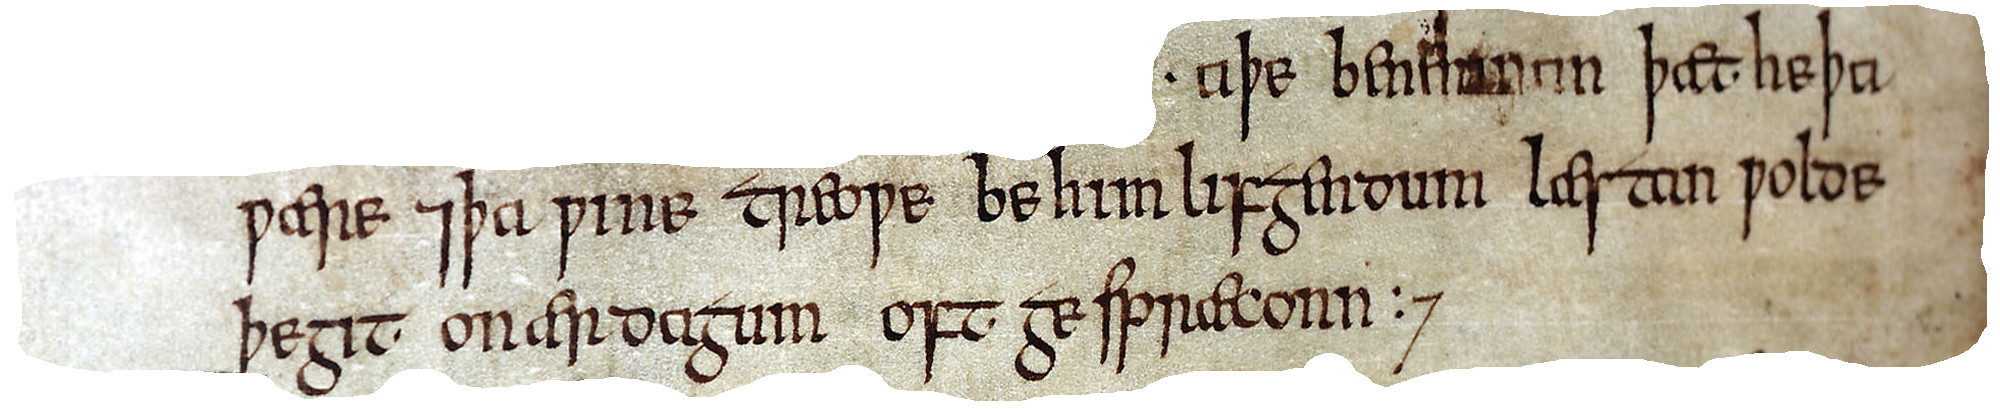 · aþe benemnan þæt he þa
ƿære ⁊ þa ƿine treoƿe be him lifgendum læstan ƿolde
þe git on ærdagum oft ge spræconn :⁊